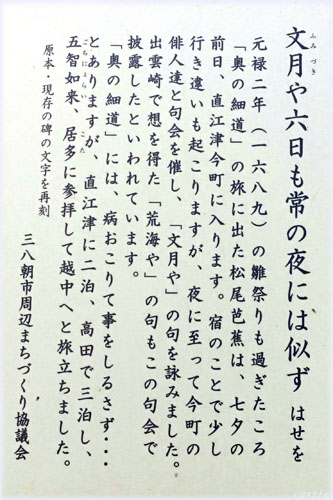 文月や六日も常の夜には似ず はせを
ふみづき
元禄二年（一六八九）の雛祭りも過ぎたころ
「奥の細道」の旅に出た松尾芭蕉は、七夕の
前日、直江津今町に入ります。宿のことで少し
行き違いも起こりますが、夜に至って今町の
俳人達と句会を催し、「文月や」の句を詠みました。
出雲崎で想を得た「荒海や」の句もこの句会で
披露したといわれています。
「奥の細道」には、病おこりて事をしるさず・・・
とありますが、直江津に二泊、高田で三泊し、
五智如来、居多に参拝して越中へと旅立ちました。
ごちにょらい こた
原本・現存の碑の文字を再刻
三八朝市周辺まちづくり協議会